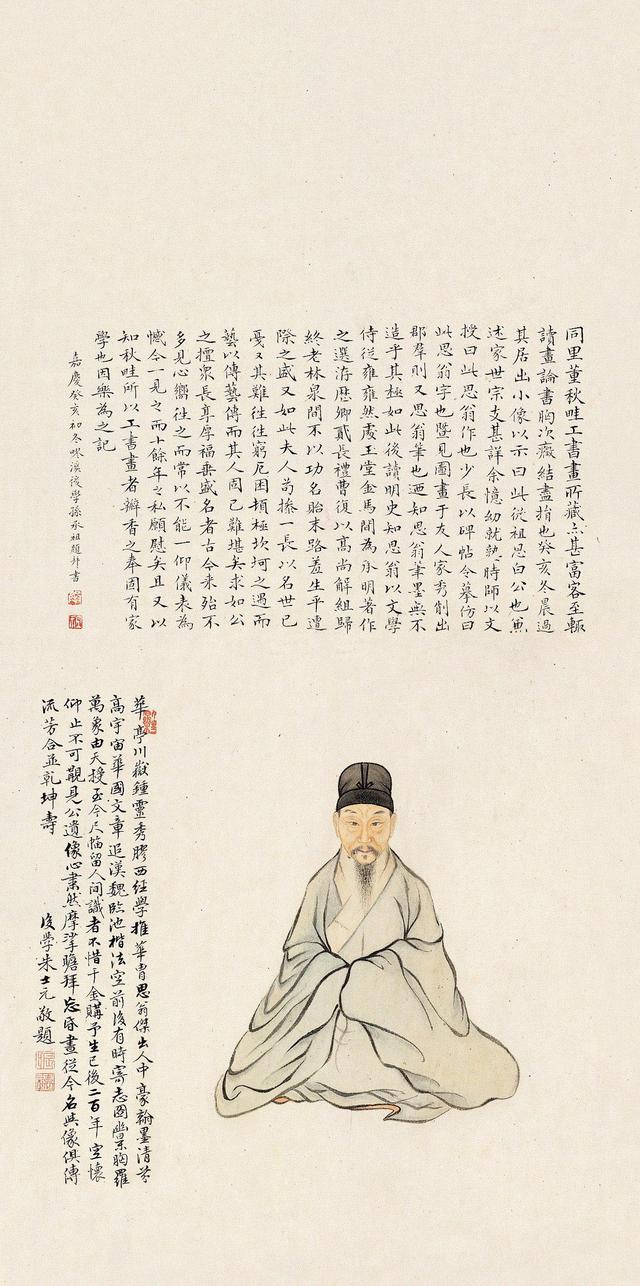 同里董秋畦工書畫所藏亦甚富客至輒
讀畫論書胸次癥結盡捐也癸亥冬晨過
其居出小像以示曰此從祖思白公也
述家世宗支甚詳余憶幼就熟時師以文
授曰此思翁作也少長以碑帖令摹仿曰
此思翁字也暨見圖畫于友人家秀削出
郡羣則又思翁華也迺知思翁筆墨無不
造乎其極如此後讀明史知思翁以文學
侍從雍雍然處玉堂金馬間為永明著作
之選洊歷卿貳長禮曹復以高尚解組歸
終老林泉間不以功名貽末路羞生平遭
際之盛又如此夫人苟擅一長以名世已
憂乎其難往往窮厄困頓極坎坷之遇而
藝以傳藝傳而其人固已難堪矣求如公
之擅眾長享厚福垂盛名者古今來殆不
多見心嚮往之而常以不能一仰儀表為
憾今一見之而十餘年之私願慰矣且又以
知秋畦所以工書畫者瓣香之奉固有家
學也因樂為之記
嘉慶癸亥初冬 溪後學孫承祖題并書
華亭川嶽鍾靈秀膠西經學推華胄思翁傑出人中豪翰墨清芬
高宇宙華國文章追漢魏臨池楷法空前後有時寄志圖 胸羅
萬象由天授至今尺幅留人間識者不惜千金購予生已後二百年空懷
仰止不可覯見公遺像心肅然摩挲瞻拜忘昏晝從今名與像俱傳
流芳合並乾坤壽
後學朱士元敬題